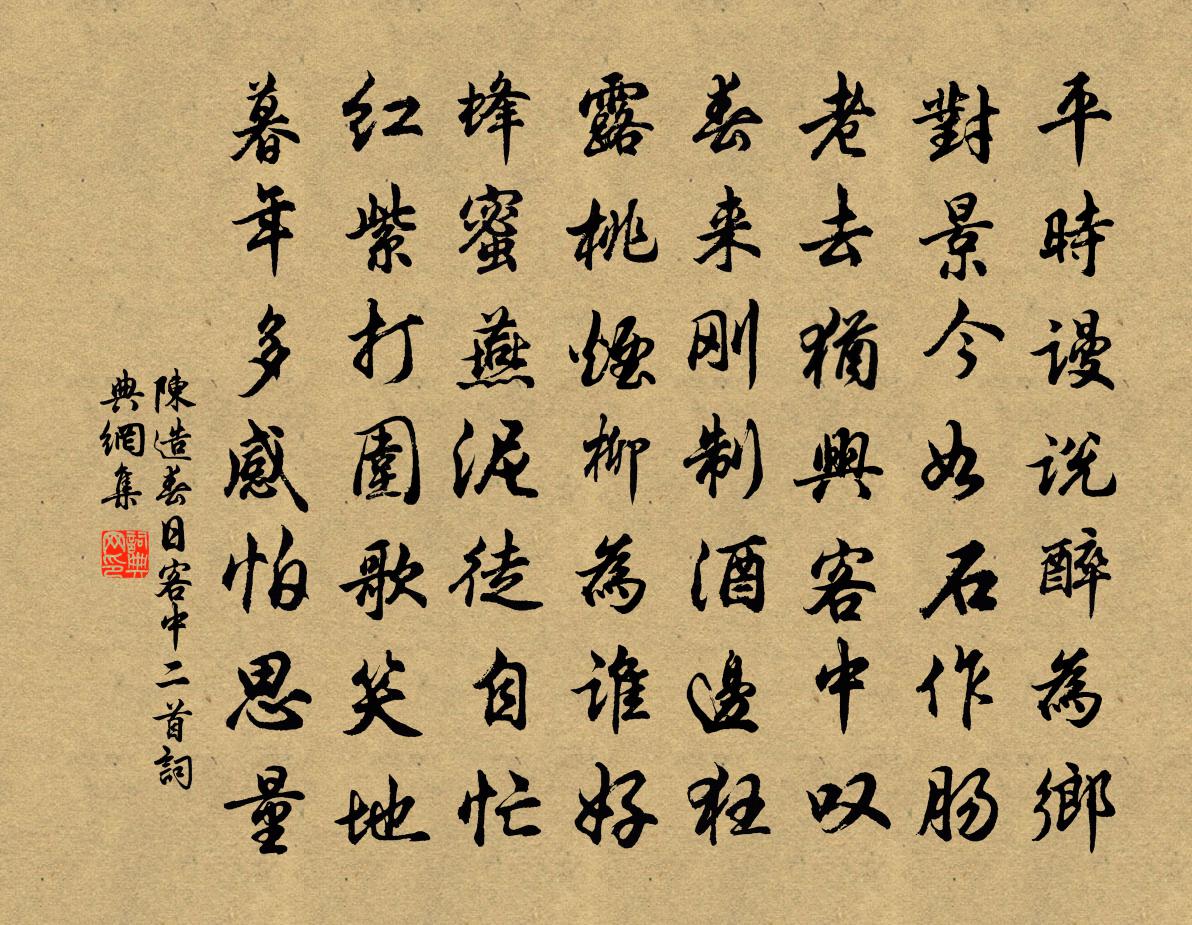 平時謾說醉為鄉
對景今如石作腸
老去猶興客中叹
春来刚制酒邊狂
露桃煙柳為誰好
蜂蜜燕泥徒自忙
红紫打圍歌笑地
暮年多感怕思量
陳造春日客中二首詞
典網集
詞典
网印